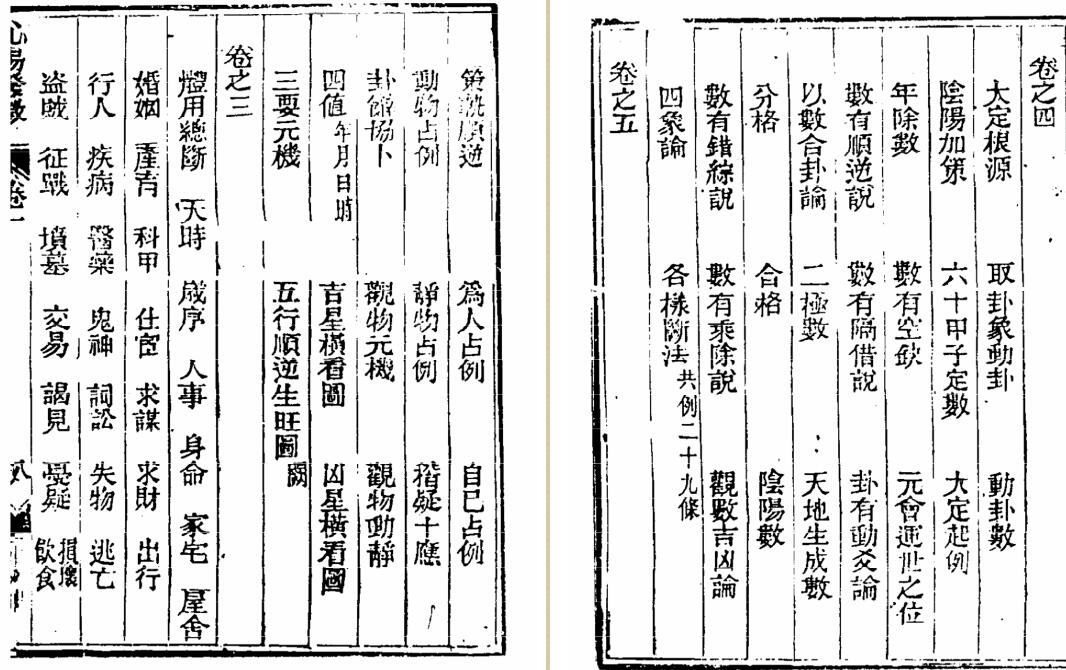 策軌順逆 爲人占例 自己占例
動物占例 靜物占例 稽疑十應
協卜 觀物元機 觀物動靜
四值年月日時 吉星橫看圖 凶星橫看圖
三要元機 五行順逆生旺圖闕
卷之三
體用總斷 天時 歲序 人事 身命 家宅 屋舍
婚姻 產育 科甲 仕宦 求謀 求財 出行
行人 疾病 醫藥 鬼神 詞訟 失物 逃亡
盜賊 征戰 墳墓 交易 謁見 憂疑 損壞飲食
心易發微 卷一 八
卷之四
大定根源 取卦象動卦 動卦數
陰陽加策 六十甲子定數 大定起例
年除數 數有空欽 元會運世之位
數有順逆說 數有隔借說 卦有動爻論
以數合卦論 二極數 天地生成數
分格 合格 陰陽數
數有錯綜說 數有乘除說 觀數吉凶論
四象論 各樣斷法共例二十九條
卷之五